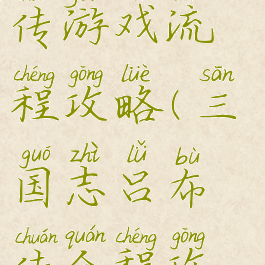 传游戏流
chéng gōng lüè sān
程攻略(三
guó zhì lǚ bù
国志吕布
chuán quán chéng gōng
传全程攻